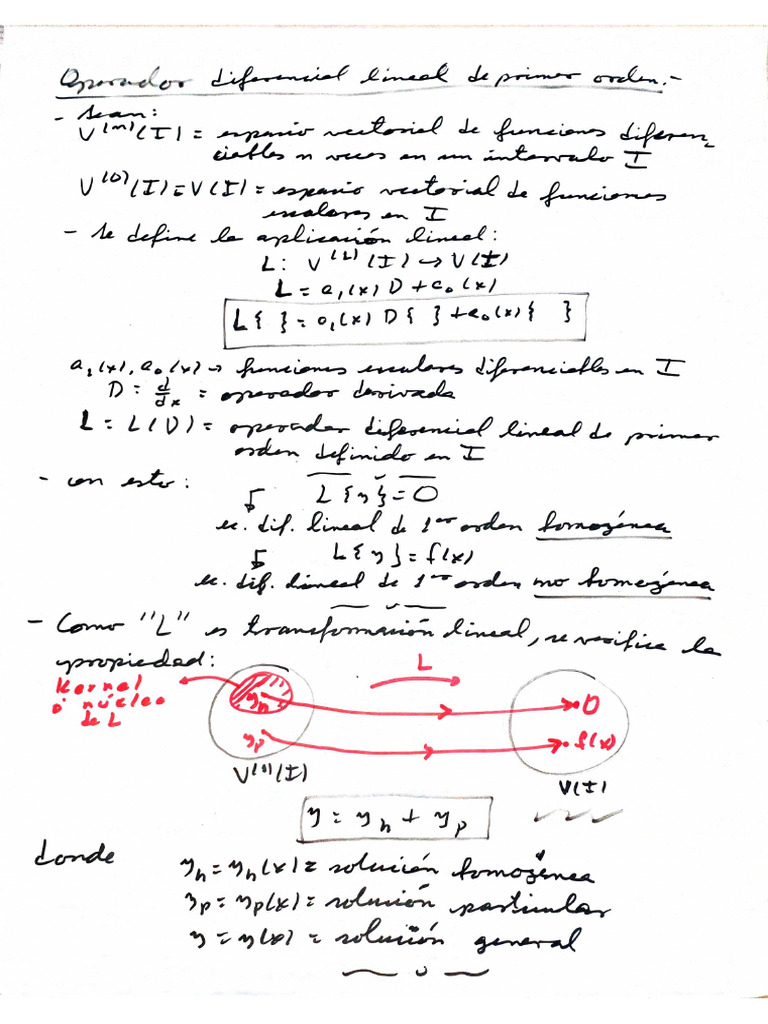 Operador diferencial lineal de primer orden.-
- Sean:
V^(n)(I) = espacio vectorial de funciones diferen-
ciables n veces en un intervalo I
V^(0)(I) = V(I) = espacio vectorial de funciones
escalares en I
- Se define la aplicación lineal:
L: V^(1)(I) → V(I)
L = a₁(x) D + a₀(x)
L{ } = a₁(x) D{ } + a₀(x){ }
a₁(x), a₀(x) → funciones escalares diferenciables en I
D = d/dx = operador derivada
L = L(D) = operador diferencial lineal de primer
orden definido en I
- con esto: L{y} = 0
ec. dif. lineal de 1er orden homogénea
L{y} = f(x)
ec. dif. lineal de 1er orden no homogénea
- Como "L" es transformación lineal, se verifica la
propiedad:
L
Kernel
o núcleo
de L
yₕ
0
yₚ
f(x)
V^(1)(I)
V(I)
y = yₕ + yₚ
donde
yₕ = yₕ(x) = solución homogénea
yₚ = yₚ(x) = solución particular
y = y(x) = solución general